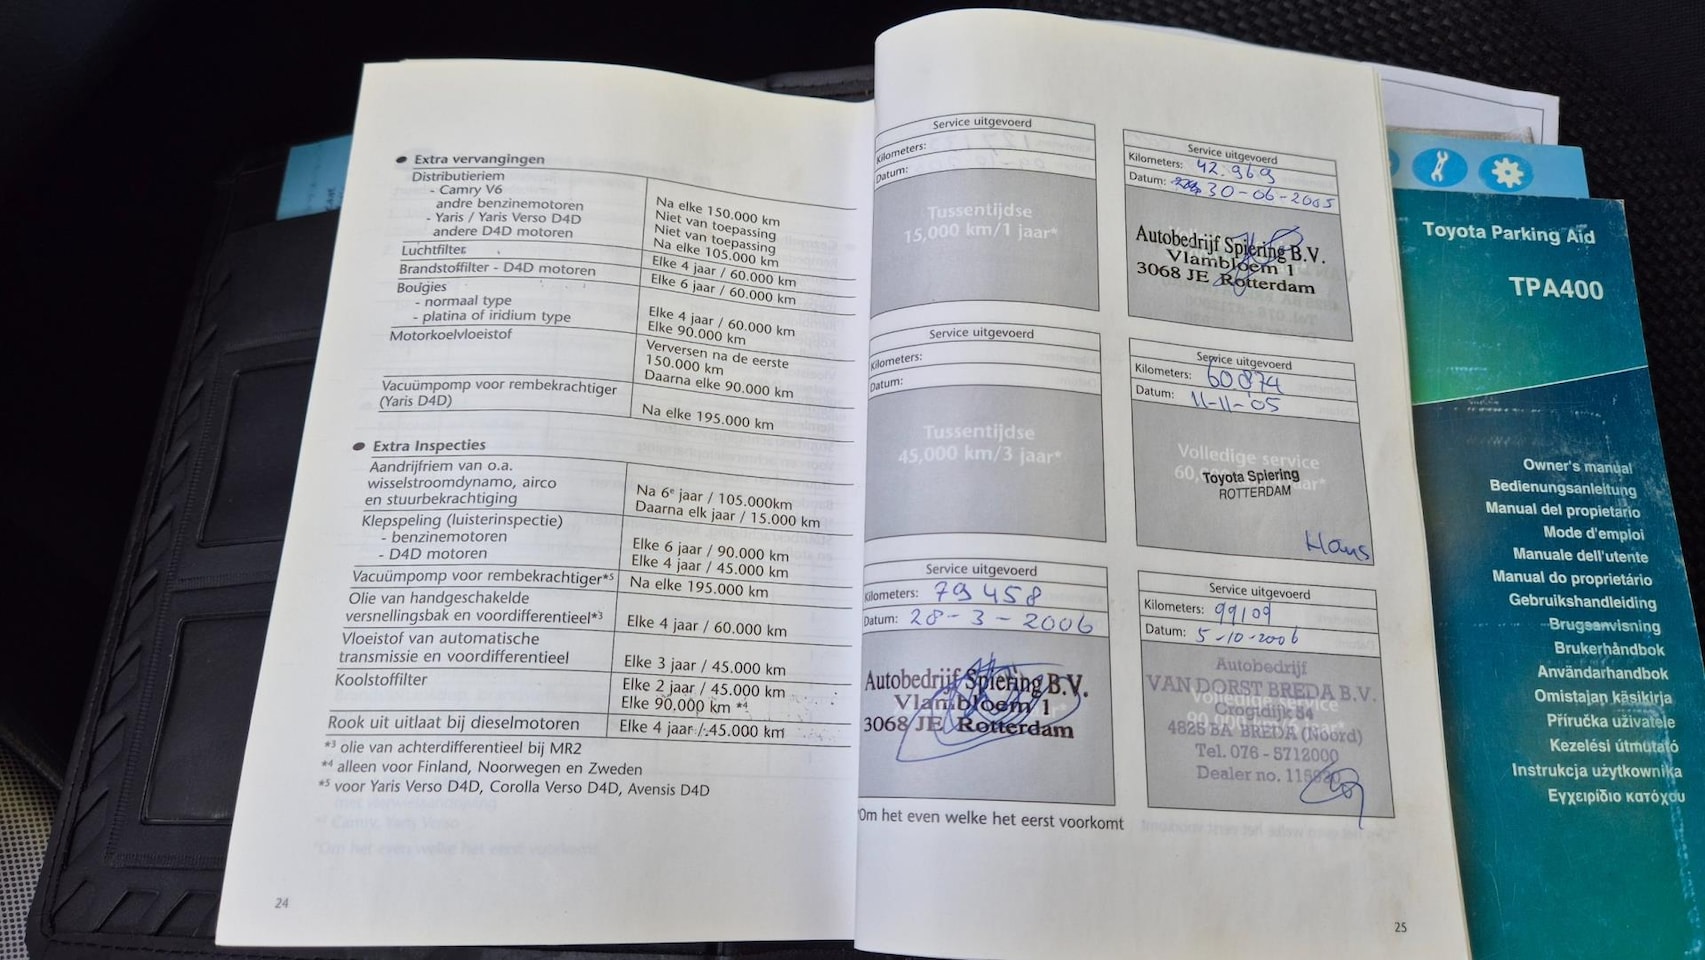 ● Extra vervangingen
Distributieriem
- Camry V6
andre benzinemotoren
- Yaris / Yaris Verso D4D
andere D4D motoren
Na elke 150.000 km
Niet van toepassing
Niet van toepassing
Na elke 105.000 km
Luchtfilter
Elke 4 jaar / 60.000 km
Brandstoffilter - D4D motoren
Elke 6 jaar / 60.000 km
Bougies
- normaal type
- platina of iridium type
Elke 4 jaar / 60.000 km
Elke 90.000 km
Motorkoelvloeistof
Verversen na de eerste
150.000 km
Daarna elke 90.000 km
Vacuümpomp voor rembekrachtiger
(Yaris D4D)
Na elke 195.000 km
● Extra Inspecties
Aandrijfriem van o.a.
wisselstroomdynamo, airco
en stuurbekrachtiging
Na 6e jaar / 105.000km
Daarna elk jaar / 15.000 km
Klepspeling (luisterinspectie)
- benzinemotoren
- D4D motoren
Elke 6 jaar / 90.000 km
Elke 4 jaar / 45.000 km
Vacuümpomp voor rembekrachtiger*5
Na elke 195.000 km
Olie van handgeschakelde
versnellingsbak en voordifferentieel*3
Elke 4 jaar / 60.000 km
Vloeistof van automatische
transmissie en voordifferentieel
Elke 3 jaar / 45.000 km
Koolstoffilter
Elke 2 jaar / 45.000 km
Elke 90.000 km *4
Rook uit uitlaat bij dieselmotoren
Elke 4 jaar / 45.000 km
*3 olie van achterdifferentieel bij MR2
*4 alleen voor Finland, Noorwegen en Zweden
*5 voor Yaris Verso D4D, Corolla Verso D4D, Avensis D4D
24
Service uitgevoerd
Kilometers:
Datum:
Tussentijdse
15,000 km/1 jaar*
Service uitgevoerd
Kilometers: 42.969
Datum: 30-06-2005
Autobedrijf Spiering B.V.
Vlambloem 1
3068 JE Rotterdam
Service uitgevoerd
Kilometers:
Datum:
Tussentijdse
45,000 km/3 jaar*
Service uitgevoerd
Kilometers: 60.874
Datum: 11-11-'05
Volledige service
Toyota Spiering
ROTTERDAM
Hans
Service uitgevoerd
Kilometers: 79458
Datum: 28-3-2006
Autobedrijf Spiering B.V.
Vlambloem 1
3068 JE Rotterdam
Service uitgevoerd
Kilometers: 99109
Datum: 5-10-2006
Autobedrijf
VAN DORST BREDA B.V.
54
BREDA (Noord)
Tel. 076 - 5712000
Dealer no.
*Om het even welke het eerst voorkomt
25
Toyota Parking Aid
TPA400
Owner's manual
Bedienungsanleitung
Manual del propietario
Mode d'emploi
Manuale dell'utente
Manual do proprietário
Gebruikshandleiding
Brugsanvisning
Brukerhåndbok
Användarhandbok
Omistajan käsikirja
Příručka uživatele
Kezelési útmutató
Instrukcja użytkownika
Εγχειρίδιο κατόχου